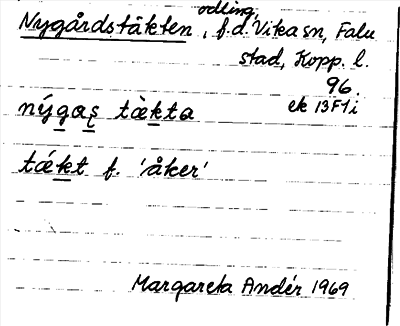 odling,
Nygårdstäkten, f.d. Vika sn, Falu
stad, Kopp. l.
96.
ek 13F1i
nýgas̨ tàkta
tǽkt f. 'åker'
Margareta Andér 1969